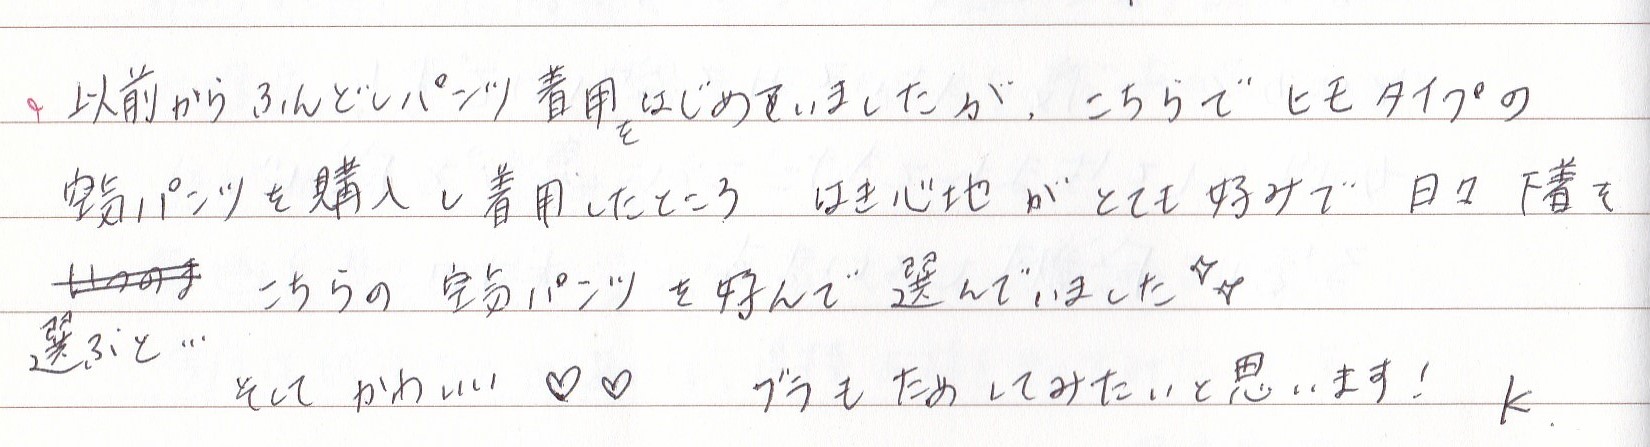 以前からふんどしパンツ着用をはじめていましたが、こちらでヒモタイプの
パンツを購入し着用したところ はき心地がとても好みで 日々 下着を
こちらの パンツを好んで選んでいました☆☆
選ぶと…
そしてかわいい♡♡ ブラもためしてみたいと思います! K.